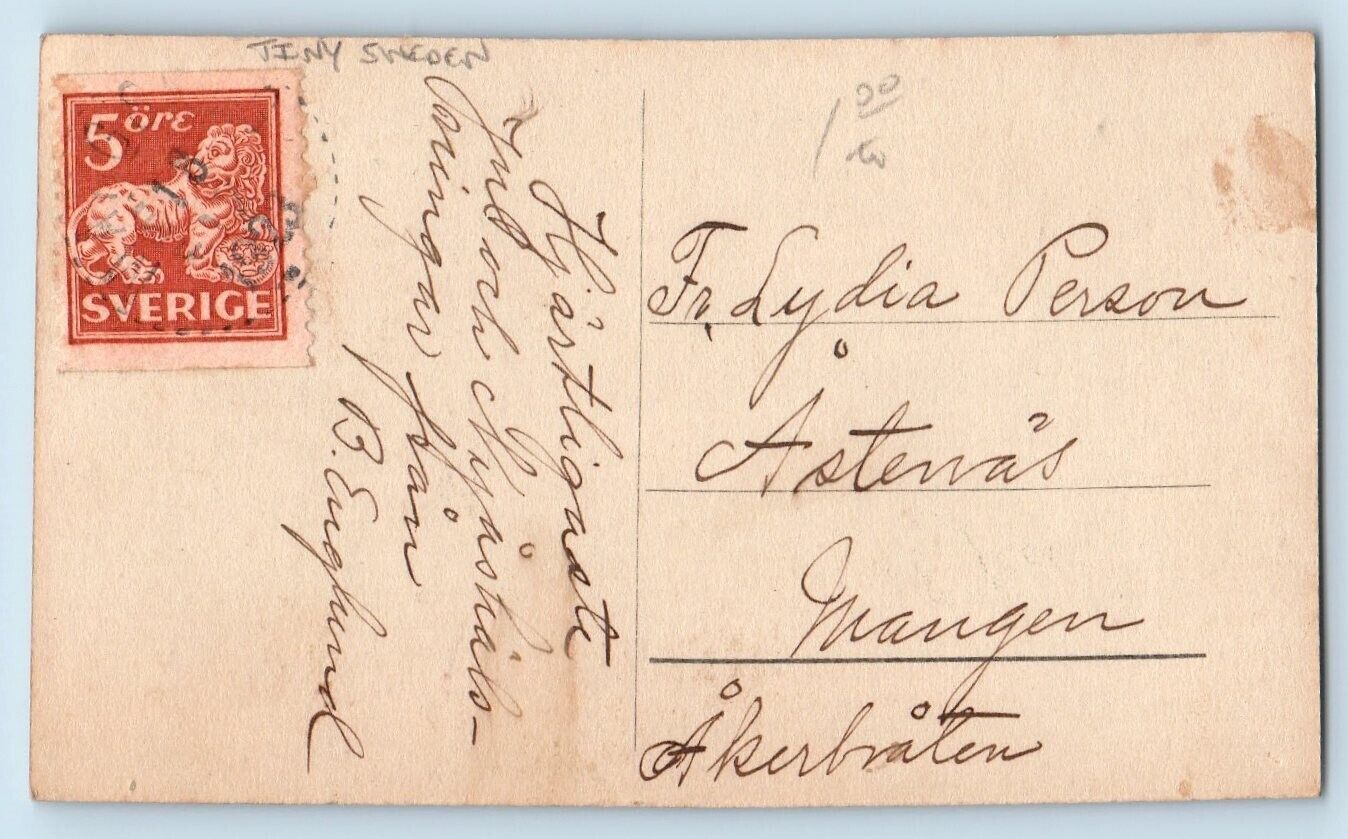 TINY SWEDEN
1 00
5 öre
SVERIGE
Hjärtligaste
Jul och Nyårs
öningar från
B. Englund
Fr. Lydia Person
Åstenäs
Mangen
Åkerbråten